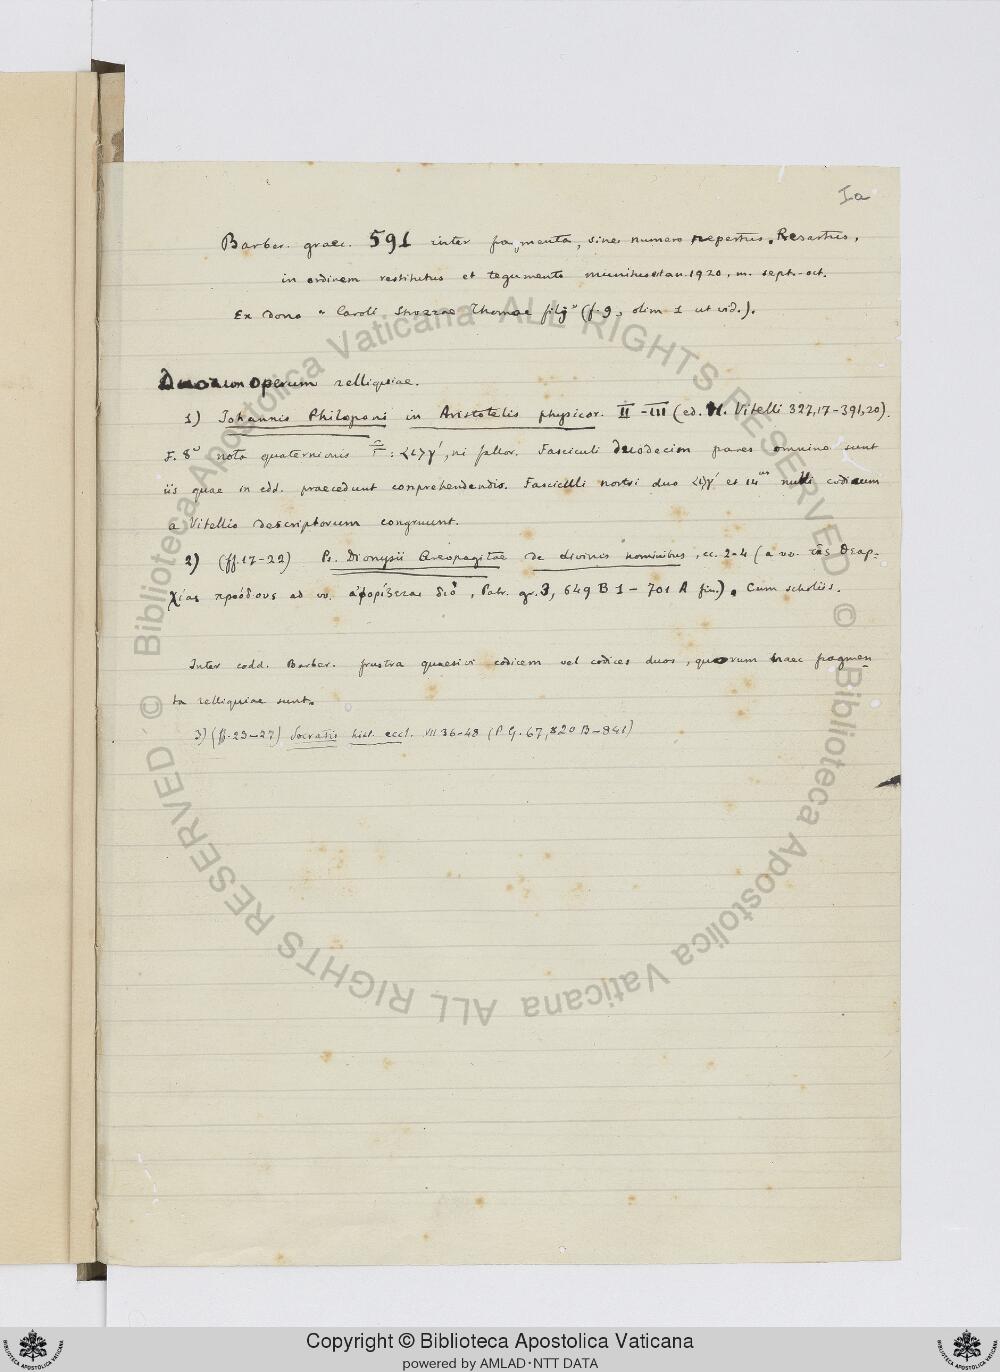 Ia
Barber. graec. 591 inter fragmenta, sine numero repertus. Resartus,
in ordinem restitutus et tegumento munitus est an. 1920, m. sept.-oct.
Ex dono "Caroli Strozzae Thomae filij" (f. 9, olim 1 ut vid.).
Duorum operum relliquiae.
1) Iohannis Philoponi in Aristotelis physicor. II-III (ed. H. Vitelli 327,17-391,20).
F. 8ᵛ nota quaternionis : ιγ´, ni fallor. Fasciculi duodecim pares omnino sunt
iis quae in edd. praecedunt comprehendendis. Fasciculi nostri duo ιγ´ et 14ᵘˢ nulli codicum
a Vitellio descriptorum congruunt.
2) (ff. 17-22) Ps. Dionysii Areopagitae de divinis nominibus, cc. 2-4 (a vv. τᾶς θεαρ-
χίας προόδους ad vv. ἀφορίζεται διὸ, Patr. gr. 3, 649 B 1 - 701 A fin.). Cum scholiis.
Inter codd. Barber. frustra quaesivi codicem vel codices duos, quorum haec fragmen-
ta relliquiae sunt.
3) (ff. 23-27) Socratis hist. eccl. VII 36-48 (P.G. 67, 820 B-841)
Biblioteca Apostolica Vaticana ALL RIGHTS RESERVED ©
Biblioteca Apostolica Vaticana ALL RIGHTS RESERVED ©
Copyright © Biblioteca Apostolica Vaticana
powered by AMLAD·NTT DATA